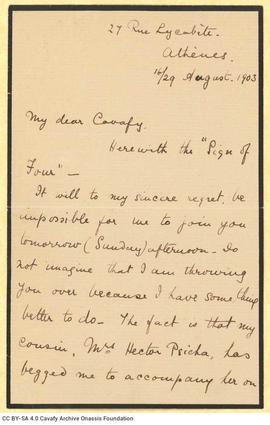 27 Rue Lycabète.
Athènes.
16/29 August. 1903
My dear Cavafy.
Herewith the "Sign of
Four" —
It will to my sincere regret, be
impossible for me to join you
tomorrow (Sunday) afternoon — Do
not imagine that I am throwing
you over because I have something
better to do — The fact is that my
cousin, Mrs Hector Psicha, has
begged me to accompany her on
CC BY-SA 4.0 Cavafy Archive Onassis Foundation